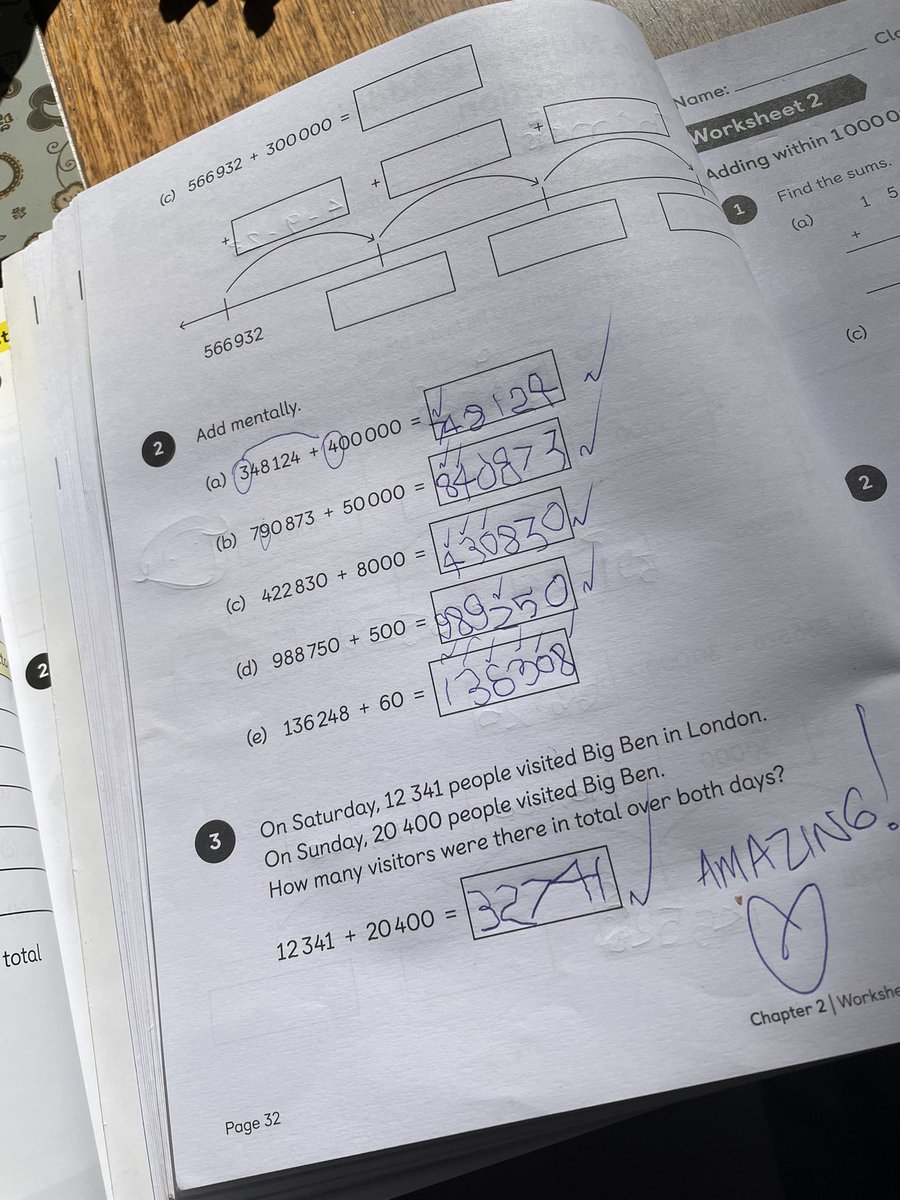 (c) 566 932 + 300 000 =
+
+
+
566 932
2 Add mentally.
(a) 348 124 + 400 000 = 748124
(b) 790 873 + 50 000 = 840873
(c) 422 830 + 8000 = 430830
(d) 988 750 + 500 = 989250
(e) 136 248 + 60 = 136308
3 On Saturday, 12 341 people visited Big Ben in London.
On Sunday, 20 400 people visited Big Ben.
How many visitors were there in total over both days?
12 341 + 20 400 = 32741
AMAZING!
Chapter 2 | Workshe
Page 32
Name:
Cla
Worksheet 2
Adding within 1 000 0
1 Find the sums.
(a) 1 5
+
(c)
2
2
total